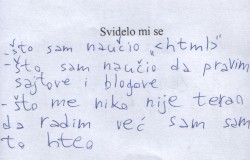 Svidelo mi se
-što sam naučio <html>
-što sam naučio da pravim
sajtove i blogove
-što me niko nije terao
da radim već sam sam
to hteo